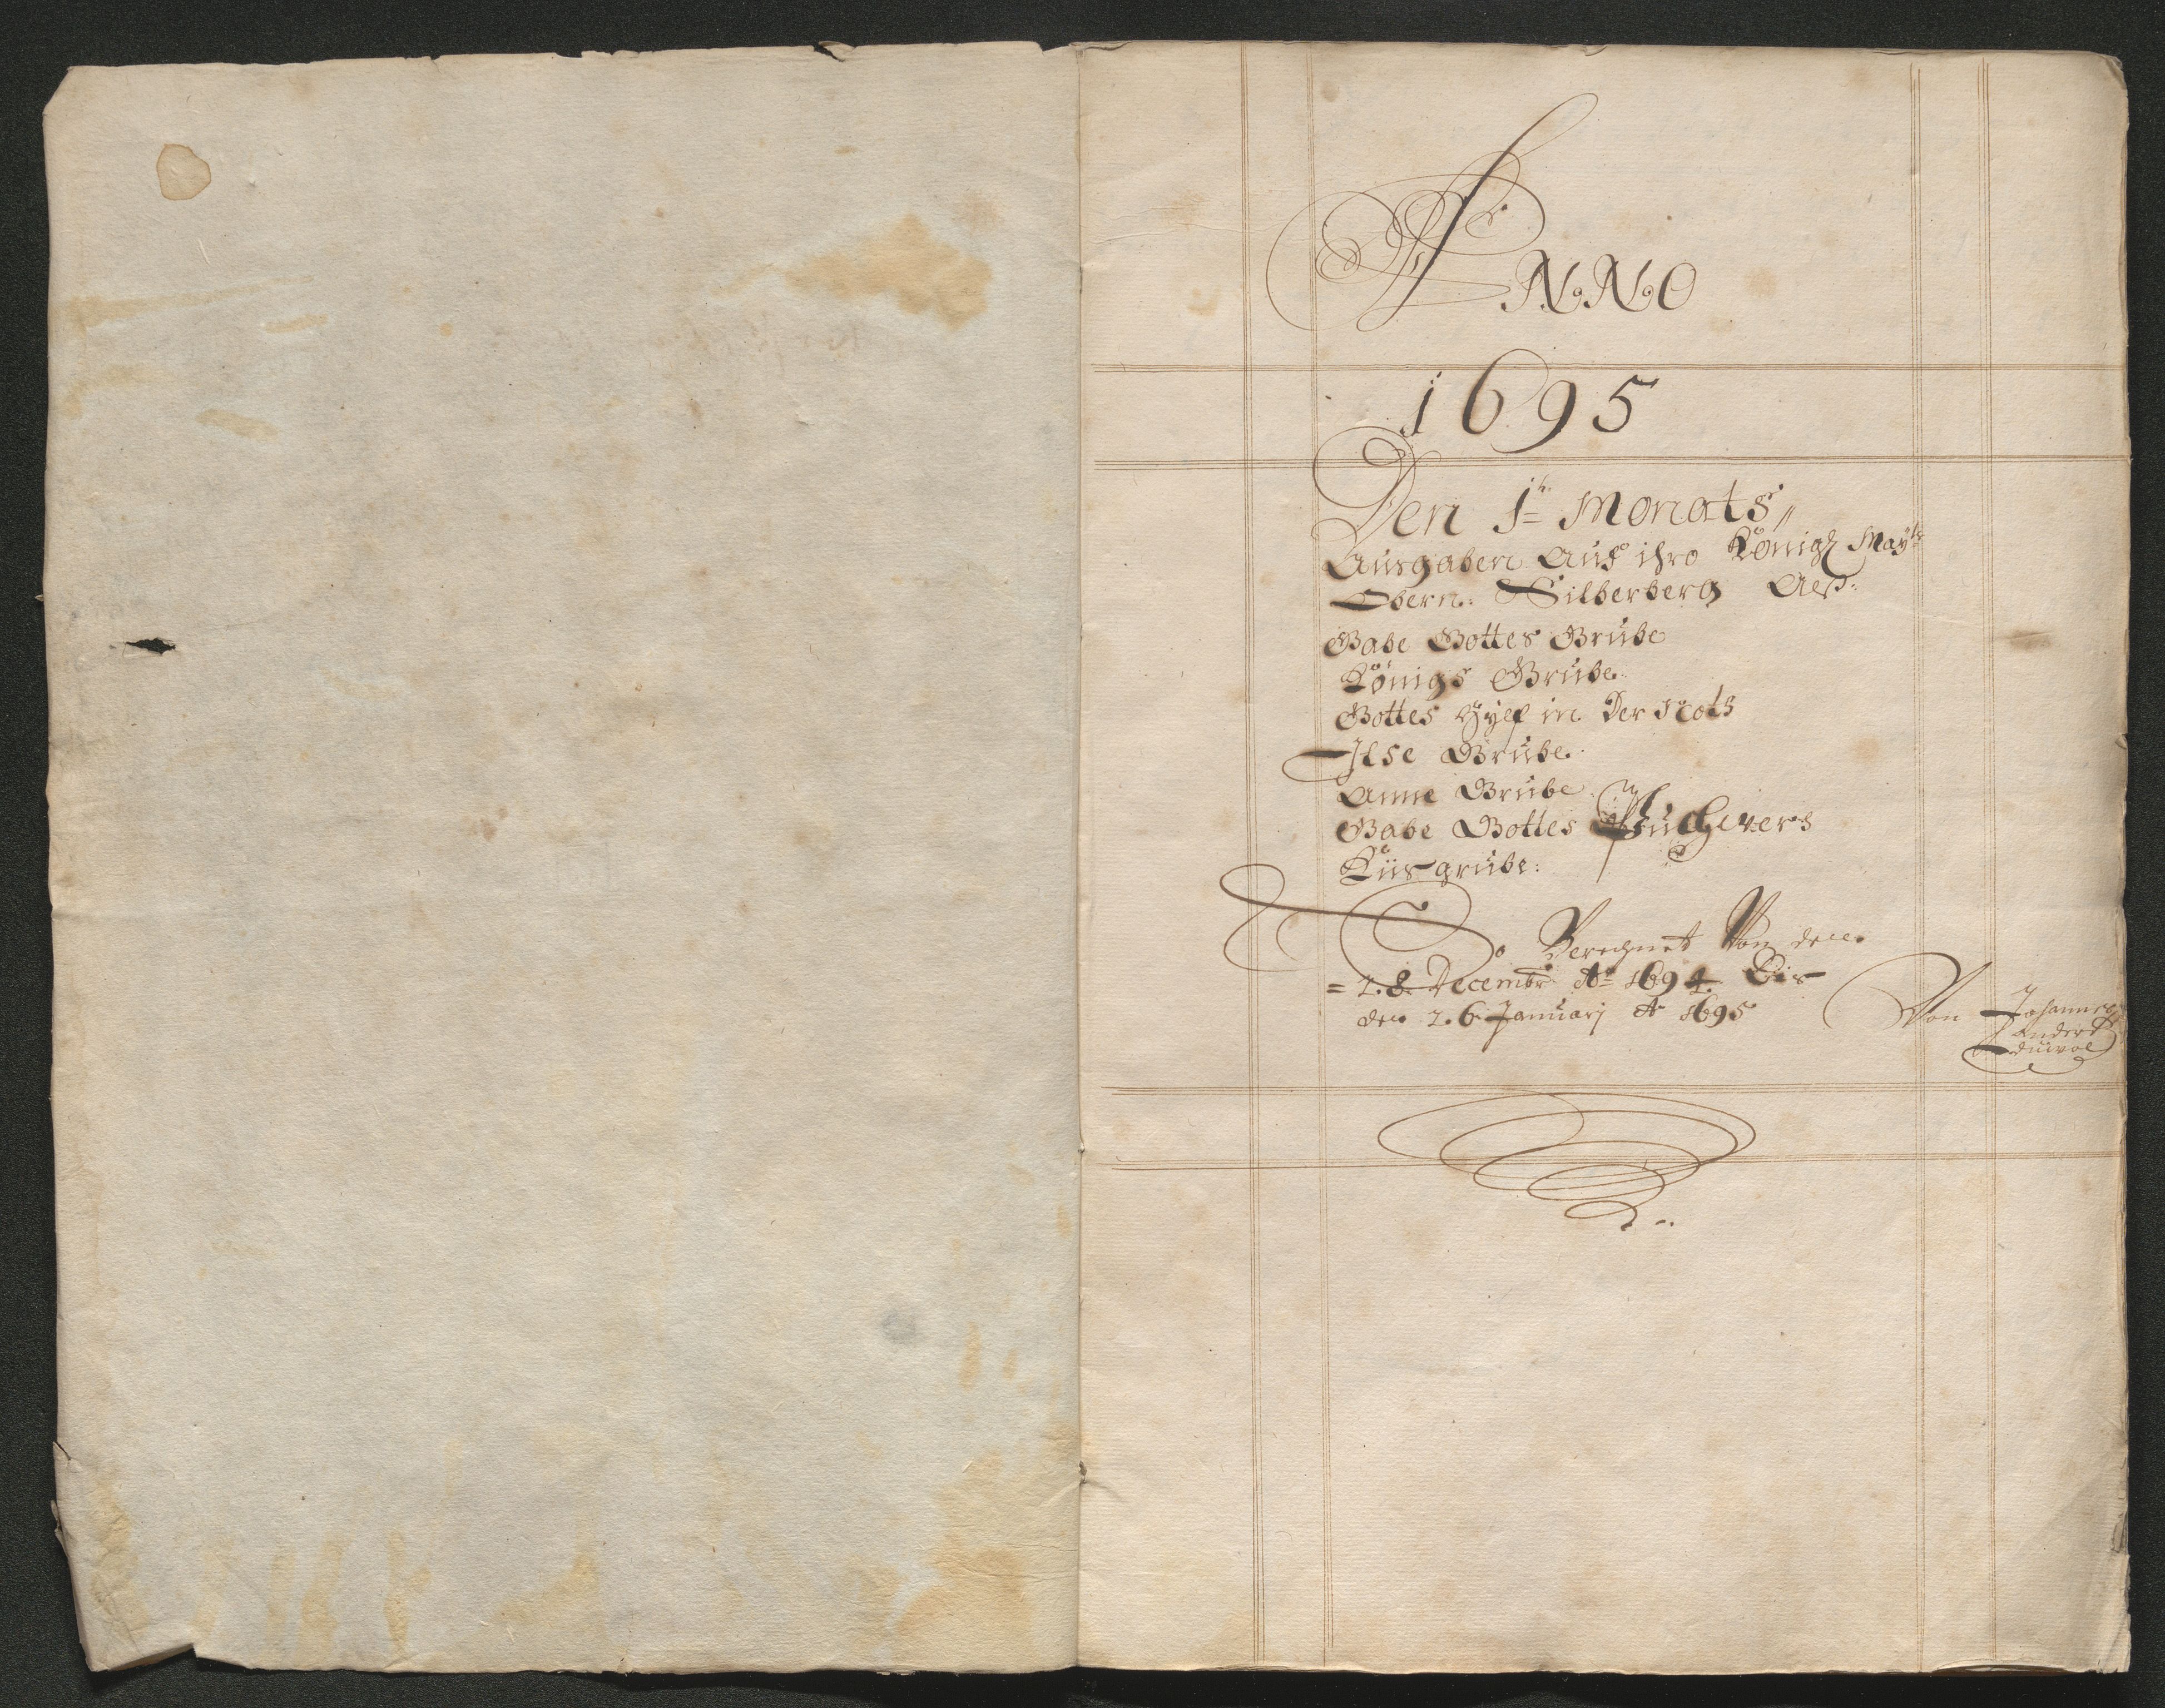 ANNO
1695
Den 1th Monats
Ausgaben Auf ihro Königl Mayts
Obern: Silberberg Alß:
Gabe Gottes Grube
Königs Grube
Gottes Hylf in Der Noth
Ilse Grube
Anne Grube
Gabe Gottes
Küsgrube:
So Berechnet Von den
28 Decembr Ao 1694 Bis
den 26 Januarj Ao 1695
Von Johannes
Anders